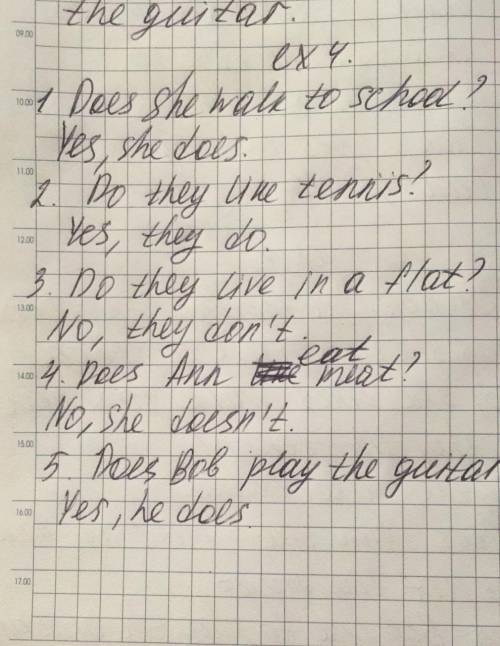 the guitar.
09.00
ex 4.
10.00
1 Does she walk to school?
Yes, she does.
11.00
2. Do they like tennis?
12.00
Yes, they do.
3. Do they live in a flat?
13.00
No, they don't.
eat
14.00
4. Does Ann meat?
No, she doesn't.
15.00
5. Does Bob play the guitar
16.00
Yes, he does.
17.00